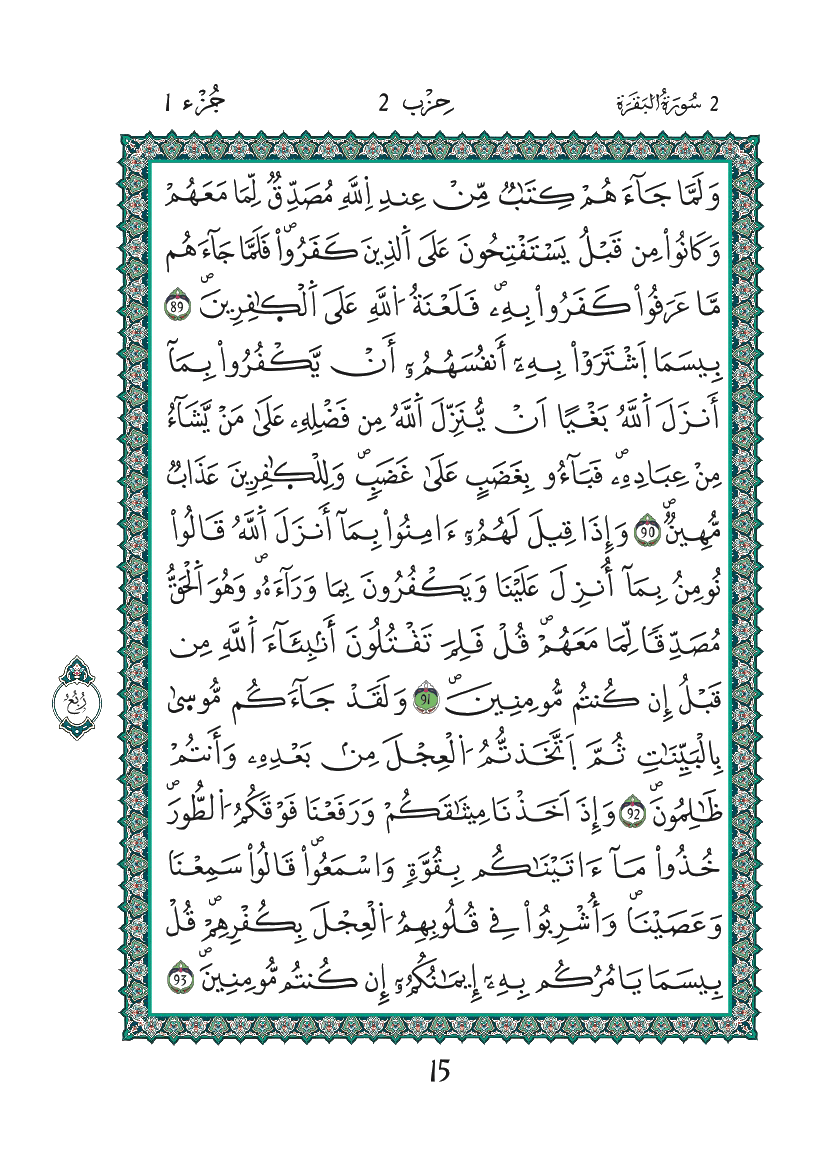 2 سُورَةُ الْبَقَرَة
حِزْب 2
جُزْء 1
وَلَمَّا جَآءَ هُمْ كِتَٰبٌ مِّنْ عِندِ اِ۬للَّهِ مُصَدِّقٌ لِّمَا مَعَهُمْ
وَكَانُواْ مِن قَبْلُ يَسْتَفْتِحُونَ عَلَى اَ۬لذِينَ كَفَرُواْۖ فَلَمَّا جَآءَ هُم
مَّا عَرَفُواْ كَفَرُواْ بِهِۦۖ فَلَعْنَةُ اُ۬للَّهِ عَلَى اَ۬لْكٰ۪فِرِينَۖ 89
بِيسَمَا اَ۪شْتَرَوْاْ بِهِۦٓ أَنفُسَهُمُۥٓ أَنْ يَّكْفُرُواْ بِمَآ
أَنزَلَ اَ۬للَّهُ بَغْياً اَنْ يُّنَزِّلَ اَ۬للَّهُ مِن فَضْلِهِۦ عَلَىٰ مَنْ يَّشَآءُ
مِنْ عِبَادِهِۦۖ فَبَآءُو بِغَضَبٍ عَلَىٰ غَضَبٖۖ وَلِلْكٰ۪فِرِينَ عَذَابٌ
مُّهِينٌۖ 90 وَإِذَا قِيلَ لَهُمُۥٓ ءَامِنُواْ بِمَآ أَنزَلَ اَ۬للَّهُ قَالُواْ
نُومِنُ بِمَآ أُنزِلَ عَلَيْنَا وَيَكْفُرُونَ بِمَا وَرَآءَهُۥۖ وَهُوَ اَ۬لْحَقُّ
مُصَدِّقاً لِّمَا مَعَهُمْۖ قُلْ فَلِمَ تَقْتُلُونَ أَنۢبِئَآءَ اَ۬للَّهِ مِن
قَبْلُ إِن كُنتُم مُّومِنِينَۖ 91 وَلَقَدْ جَآءَ كُم مُّوسىٰ
بِالْبَيِّنَٰتِ ثُمَّ اَ۪تَّخَذتُّمُ اُ۬لْعِجْلَ مِنۢ بَعْدِهِۦ وَأَنتُمْ
ظَٰلِمُونَۖ 92 وَإِذَ اَخَذْنَا مِيثَٰقَكُمْ وَرَفَعْنَا فَوْقَكُمُ اُ۬لطُّورَۖ
خُذُواْ مَآ ءَاتَيْنَٰكُم بِقُوَّةٖ وَاسْمَعُواْۖ قَالُواْ سَمِعْنَا
وَعَصَيْنَاۖ وَأُشْرِبُواْ فِي قُلُوبِهِمُ اُ۬لْعِجْلَ بِكُفْرِهِمْۖ قُلْ
بِيسَمَا يَامُرُكُم بِهِۦٓ إِيمَٰنُكُمُۥٓ إِن كُنتُم مُّومِنِينَۖ 93
رُبُعُ
15